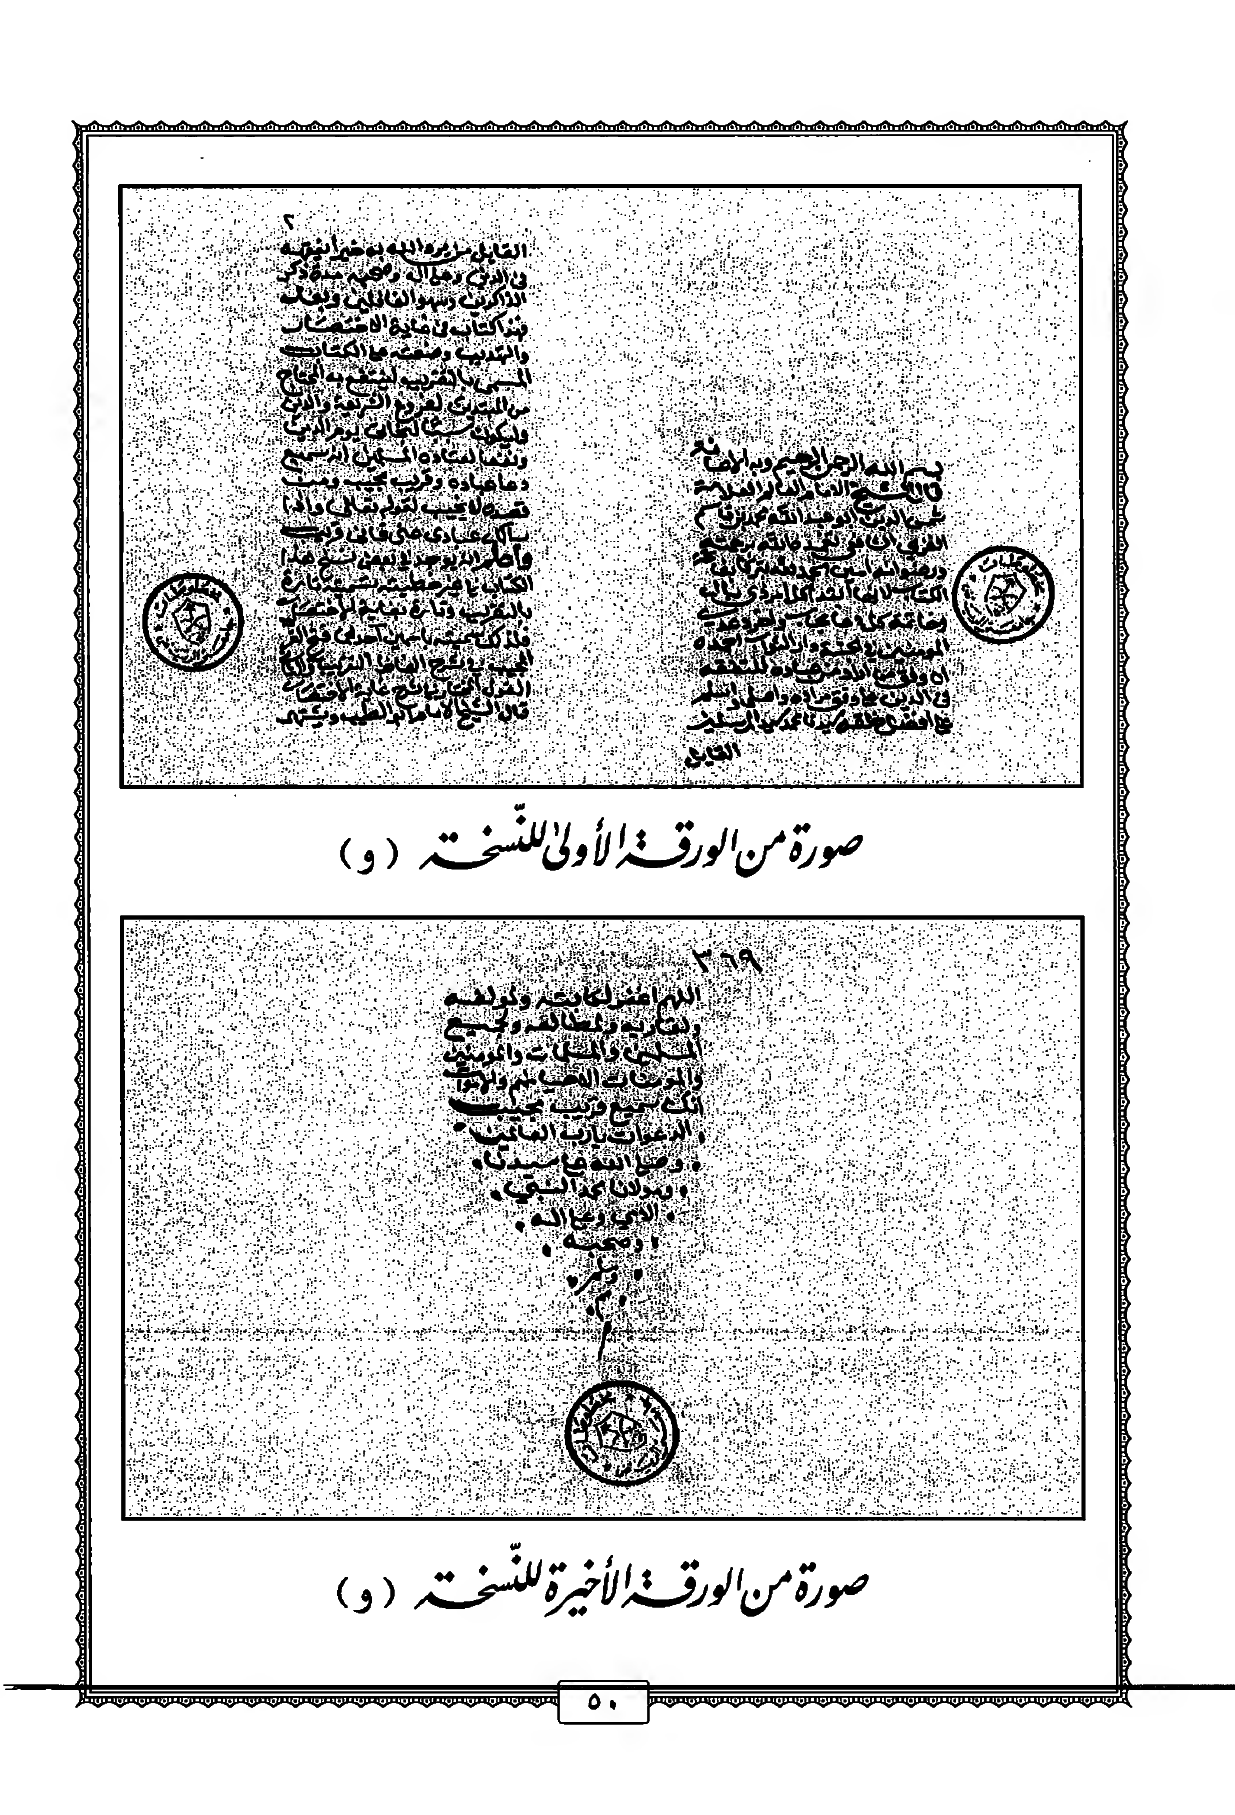 بسم الله الرحمن الرحيم وبه الاعانة
قال الشيخ الامام العالم العلامة
شمس الدين ابو عبد الله محمد بن قاسم
الشافعي تغمده الله برحمته
ورضوانه امين الحمد لله
الكتاب لانها ابتداء كل امر ذي بال
وخاتمة كل دعاء مجاب واخر دعوى
المومنين في الجنة دار الثواب احمده
ان وفق من اراد من عباده للتفقه
في الدين على وفق مراده واصلي واسلم
على افضل خلقه سيدنا محمد سيد المرسلين
القايل
٢
القايل من يرد الله به خيرا يفقهه
في الدين وعلى اله وصحبه مدة ذكر
الذاكرين وسهو الغافلين وبعد
فهذا كتاب في غاية الاختصار
والتهذيب وضعته على الكتاب
المسمى بالتقريب لينتفع به المحتاج
من المبتدين لفروع الشريعة والدين
وليكون سببا لنجاتي يوم الدين
ونفعا لعباده المسلمين انه سميع
دعا عباده وقريب مجيب ومن
قصده لا يخيب لقوله تعالى واذا
سالك عبادي عني فاني قريب
واعلم انه يوجد في بعض نسخ هذا
الكتاب في غير خطبته تسميته تارة
بالتقريب وتارة بغاية الاختصار
فلذلك سميته باسمين احدهما فتح القريب
المجيب في شرح الفاظ التقريب والثاني
القول المختار في شرح غاية الاختصار
قال الشيخ الامام ابو الطيب ويشتهر
صورة من الورقة الأولى للنسخة (و)
٣٦٩
اللهم اغفر لكاتبه ولمولفه
ولقاريه ولمطالعه ولجميع
المسلمين والمسلمات والمومنين
والمومنات الاحيا منهم والاموات
انك سميع قريب مجيب
الدعوات يارب العالمين
وصلى الله على سيدنا
ومولانا محمد النبي
الامي وعلى اله
وصحبه
وسلم
م
م
صورة من الورقة الأخيرة للنسخة (و)
٥٠